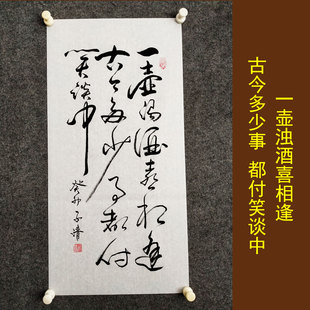 一壶浊酒喜相逢
古今多少事都付
笑谈中
癸卯子靖
一壶浊酒喜相逢
古今多少事 都付笑谈中